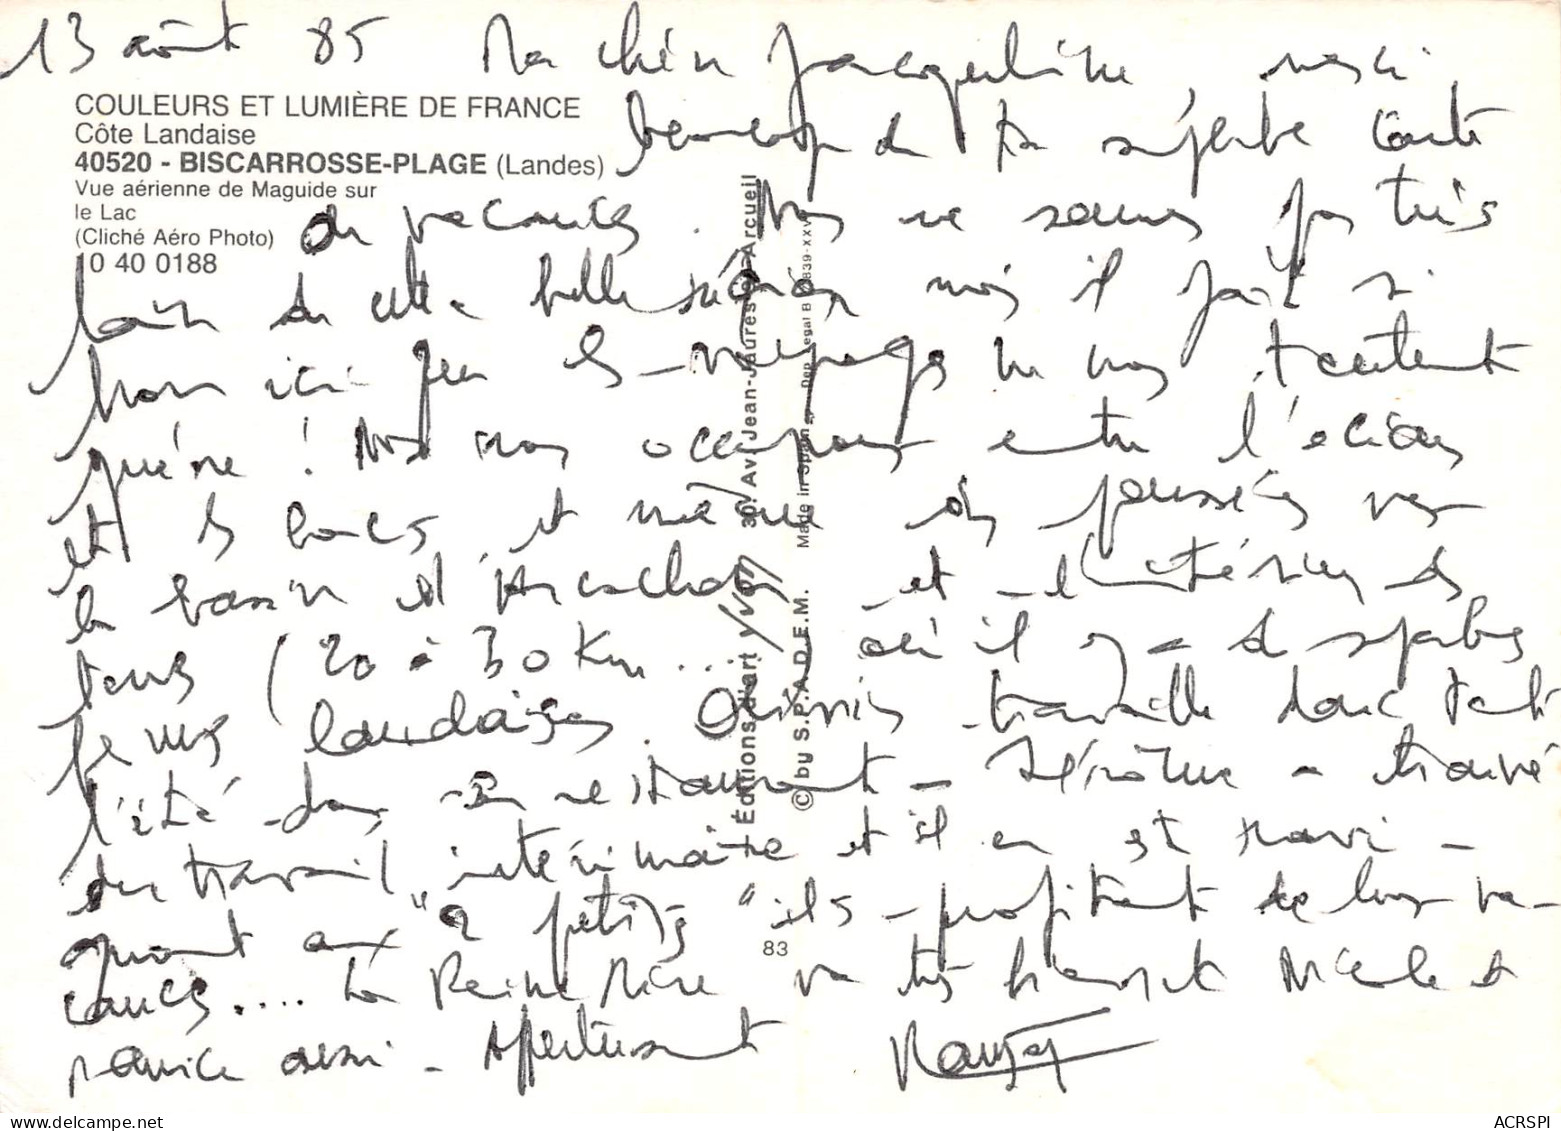 13 août 85 Ma chère Jacqueline, merci
COULEURS ET LUMIÈRE DE FRANCE
Côte Landaise
40520 - BISCARROSSE-PLAGE (Landes)
Vue aérienne de Maguide sur
le Lac
(Cliché Aéro Photo)
10 40 0188
beaucoup de ta superbe carte
de vacances. Nous ne sommes pas très
loin de cette belle région mais il fait si
bon ici que les voyages ne nous tentent
guère ! Nous nous occupons entre l'océan
et les lacs et même des poussées vers
le bassin d'Arcachon et l'intérieur des
terres (20 à 30 Km... où il y a de superbes
fermes landaises. travaille donc tout
l'été dans un restaurant - Jérôme a trouvé
du travail intérimaire et il en est ravi -
quant aux "2 petits" ils profitent de leurs va-
cances.... La Reine Mère va très bien et Nicole
aussi - Affectueusement
Éditions d'art YVON 30, Av. Jean-Jaurès - Arcueil
© by S.P.A.D.E.M. Made in Spain Dep. Legal B 839-XXV
83
ACRSPI